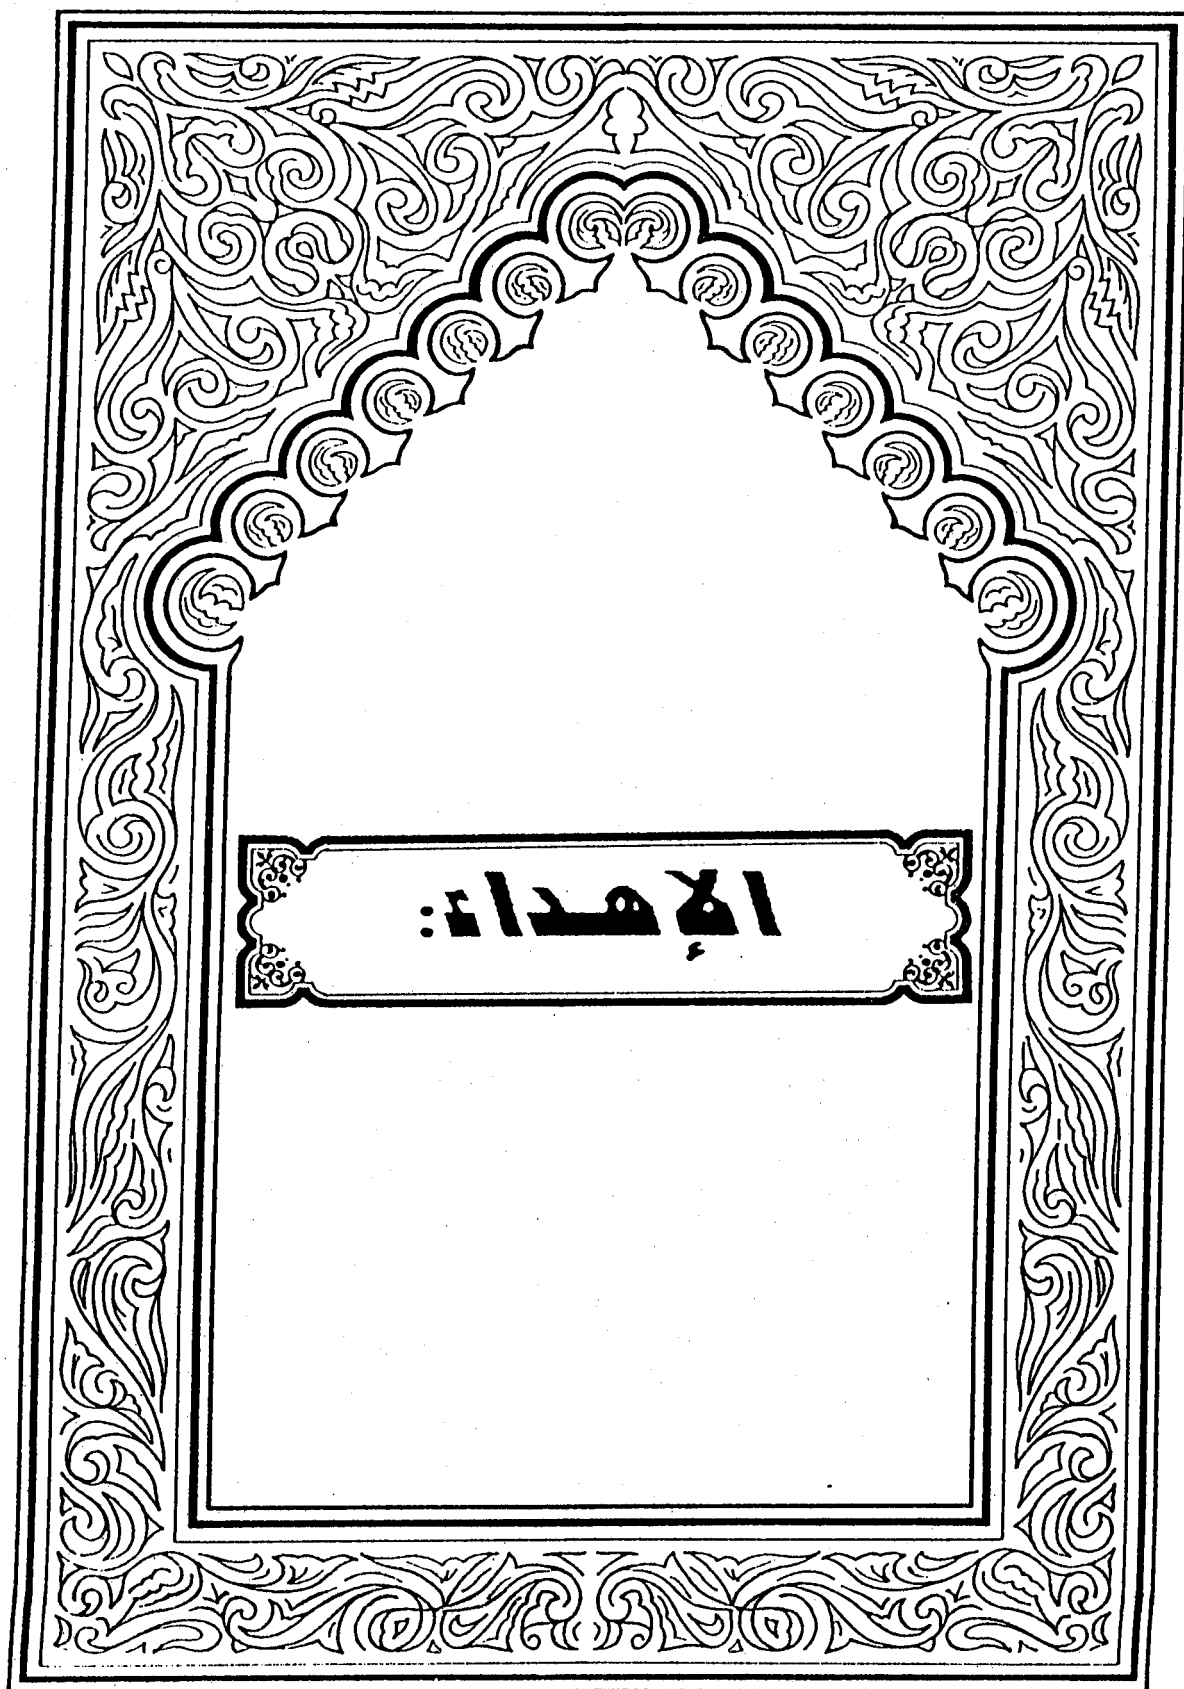 الإهداء: